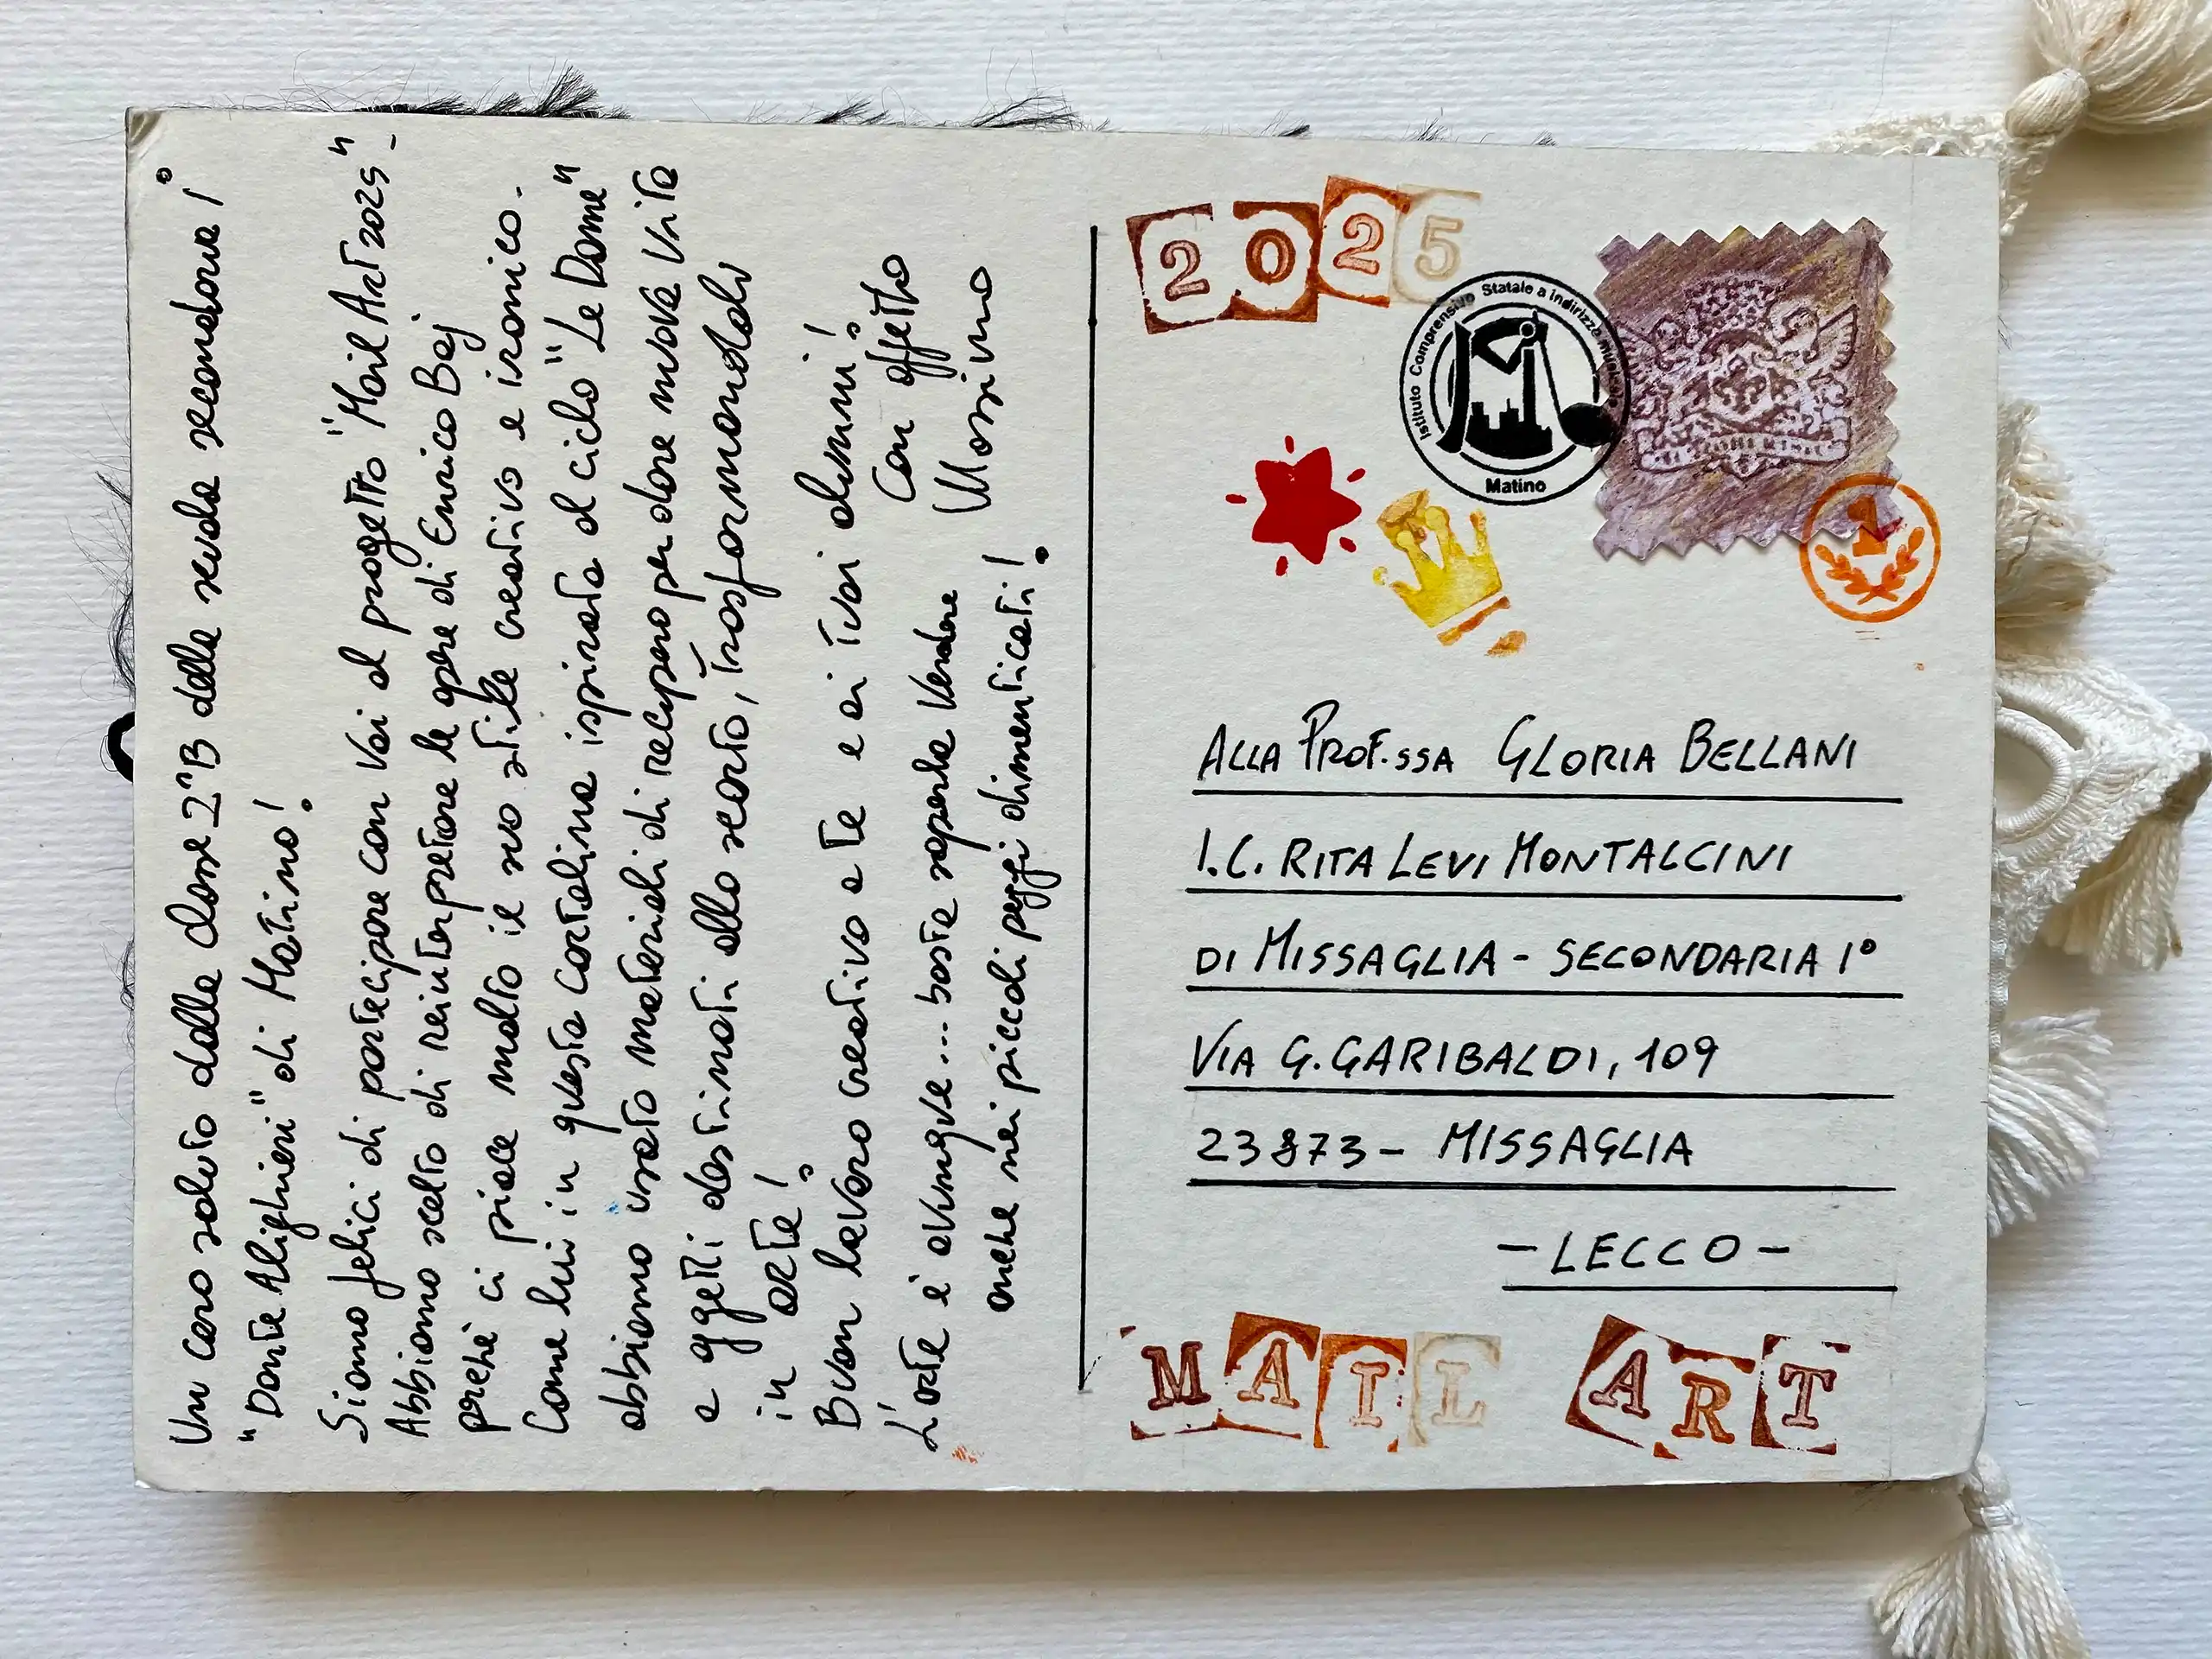 Un caro saluto dalla classe 2^B della scuola secondaria 1°
"Dante Alighieri" di Matino!
Siamo felici di partecipare con voi al progetto "Mail Art 2025".
Abbiamo scelto di reinterpretare le opere di Enrico Baj
perchè ci piace molto il suo stile creativo e ironico.
Come lui in questa cartolina ispirata al ciclo "Le Dame"
abbiamo usato materiali di recupero per dare nuova vita
a oggetti destinati allo scarto, trasformandoli
in arte!
Buon lavoro creativo a te e ai tuoi alunni!
Con affetto
Massimo
L'arte è ovunque... basta saperla vedere
anche nei piccoli pezzi dimenticati!
2025
Istituto Comprensivo Statale a indirizzo musicale
Matino
1
ALLA PROF.SSA GLORIA BELLANI
I.C. RITA LEVI MONTALCINI
DI MISSAGLIA - SECONDARIA 1°
VIA G. GARIBALDI, 109
23873 - MISSAGLIA
- LECCO -
MAIL ART